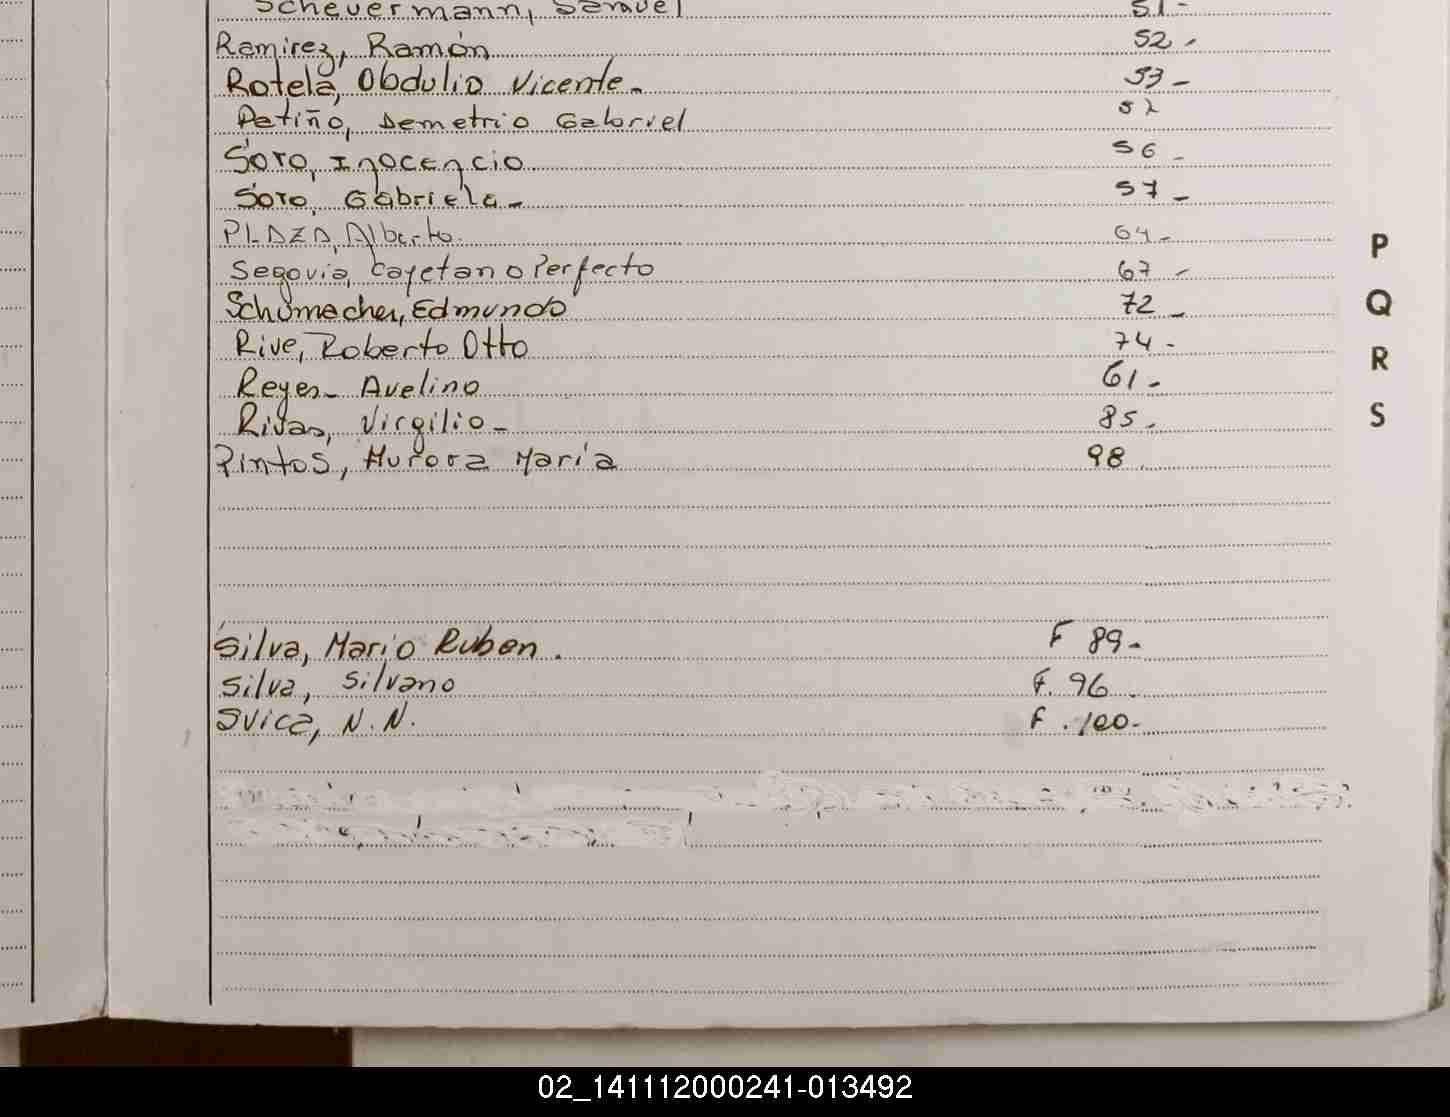 Scheuermann, Samuel 51-
Ramirez, Ramón 52-
Rotela, Obdulio Vicente- 53-
Patiño, Demetrio Gabriel
Soro, Inocencio 56-
Soro, Gabriela- 57-
PLAZA, Alberto. 64-
Segovia, Cayetano Perfecto 67-
Schumacher, Edmundo 72-
Rive, Roberto Otto 74-
Reyes- Avelino 61-
Rivas, Virgilio- 85-
Pintos, Aurora María 98
P
Q
R
S
Silva, Mario Ruben. F 89-
Silva, Silvano F. 96.
Svica, N.N. F. 100-
02_141112000241-013492